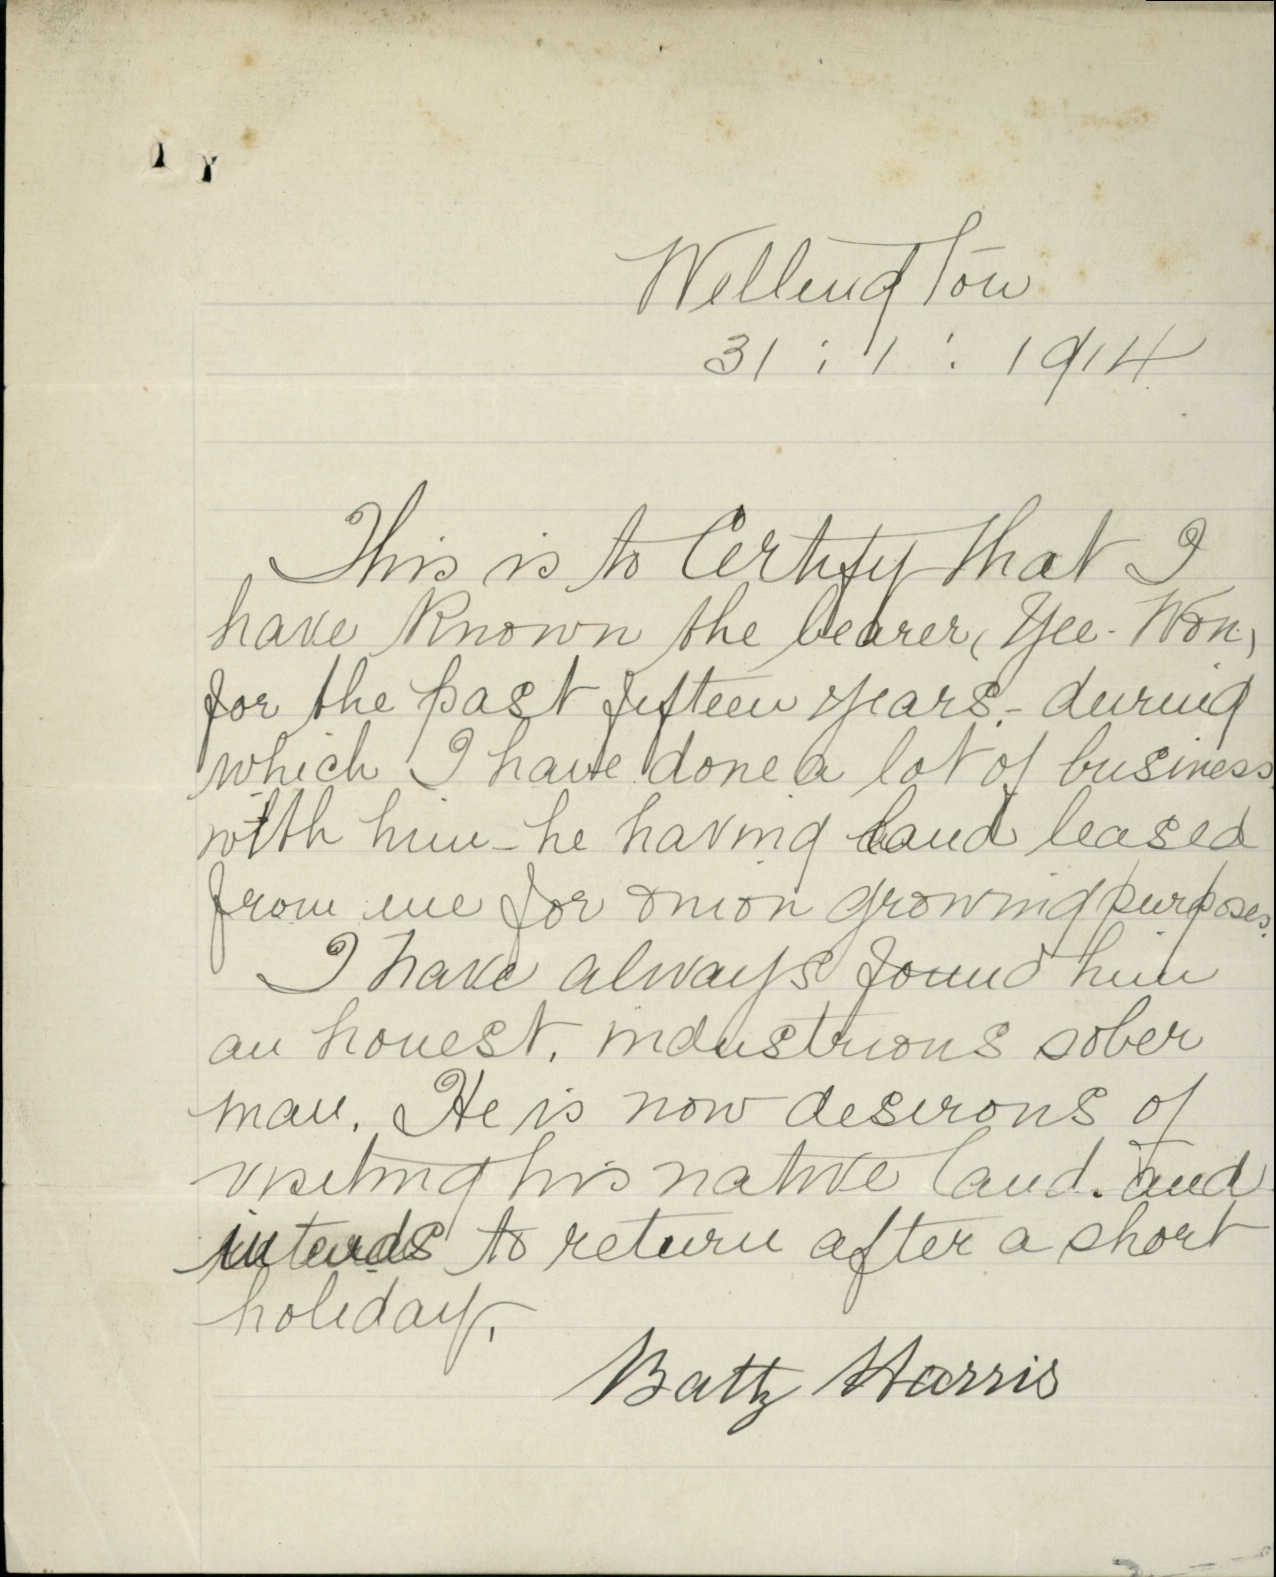 Wellington
31 : 1 : 1914
This is to Certify that I
have known the bearer, Yee-Won,
for the past fifteen years, - during
which I have done a lot of business
with him - he having land leased
from me for onion growing purposes.
I have always found him
an honest, industrious sober
man. He is now desirous of
visiting his native land. and
intends to return after a short
holiday.
Harris